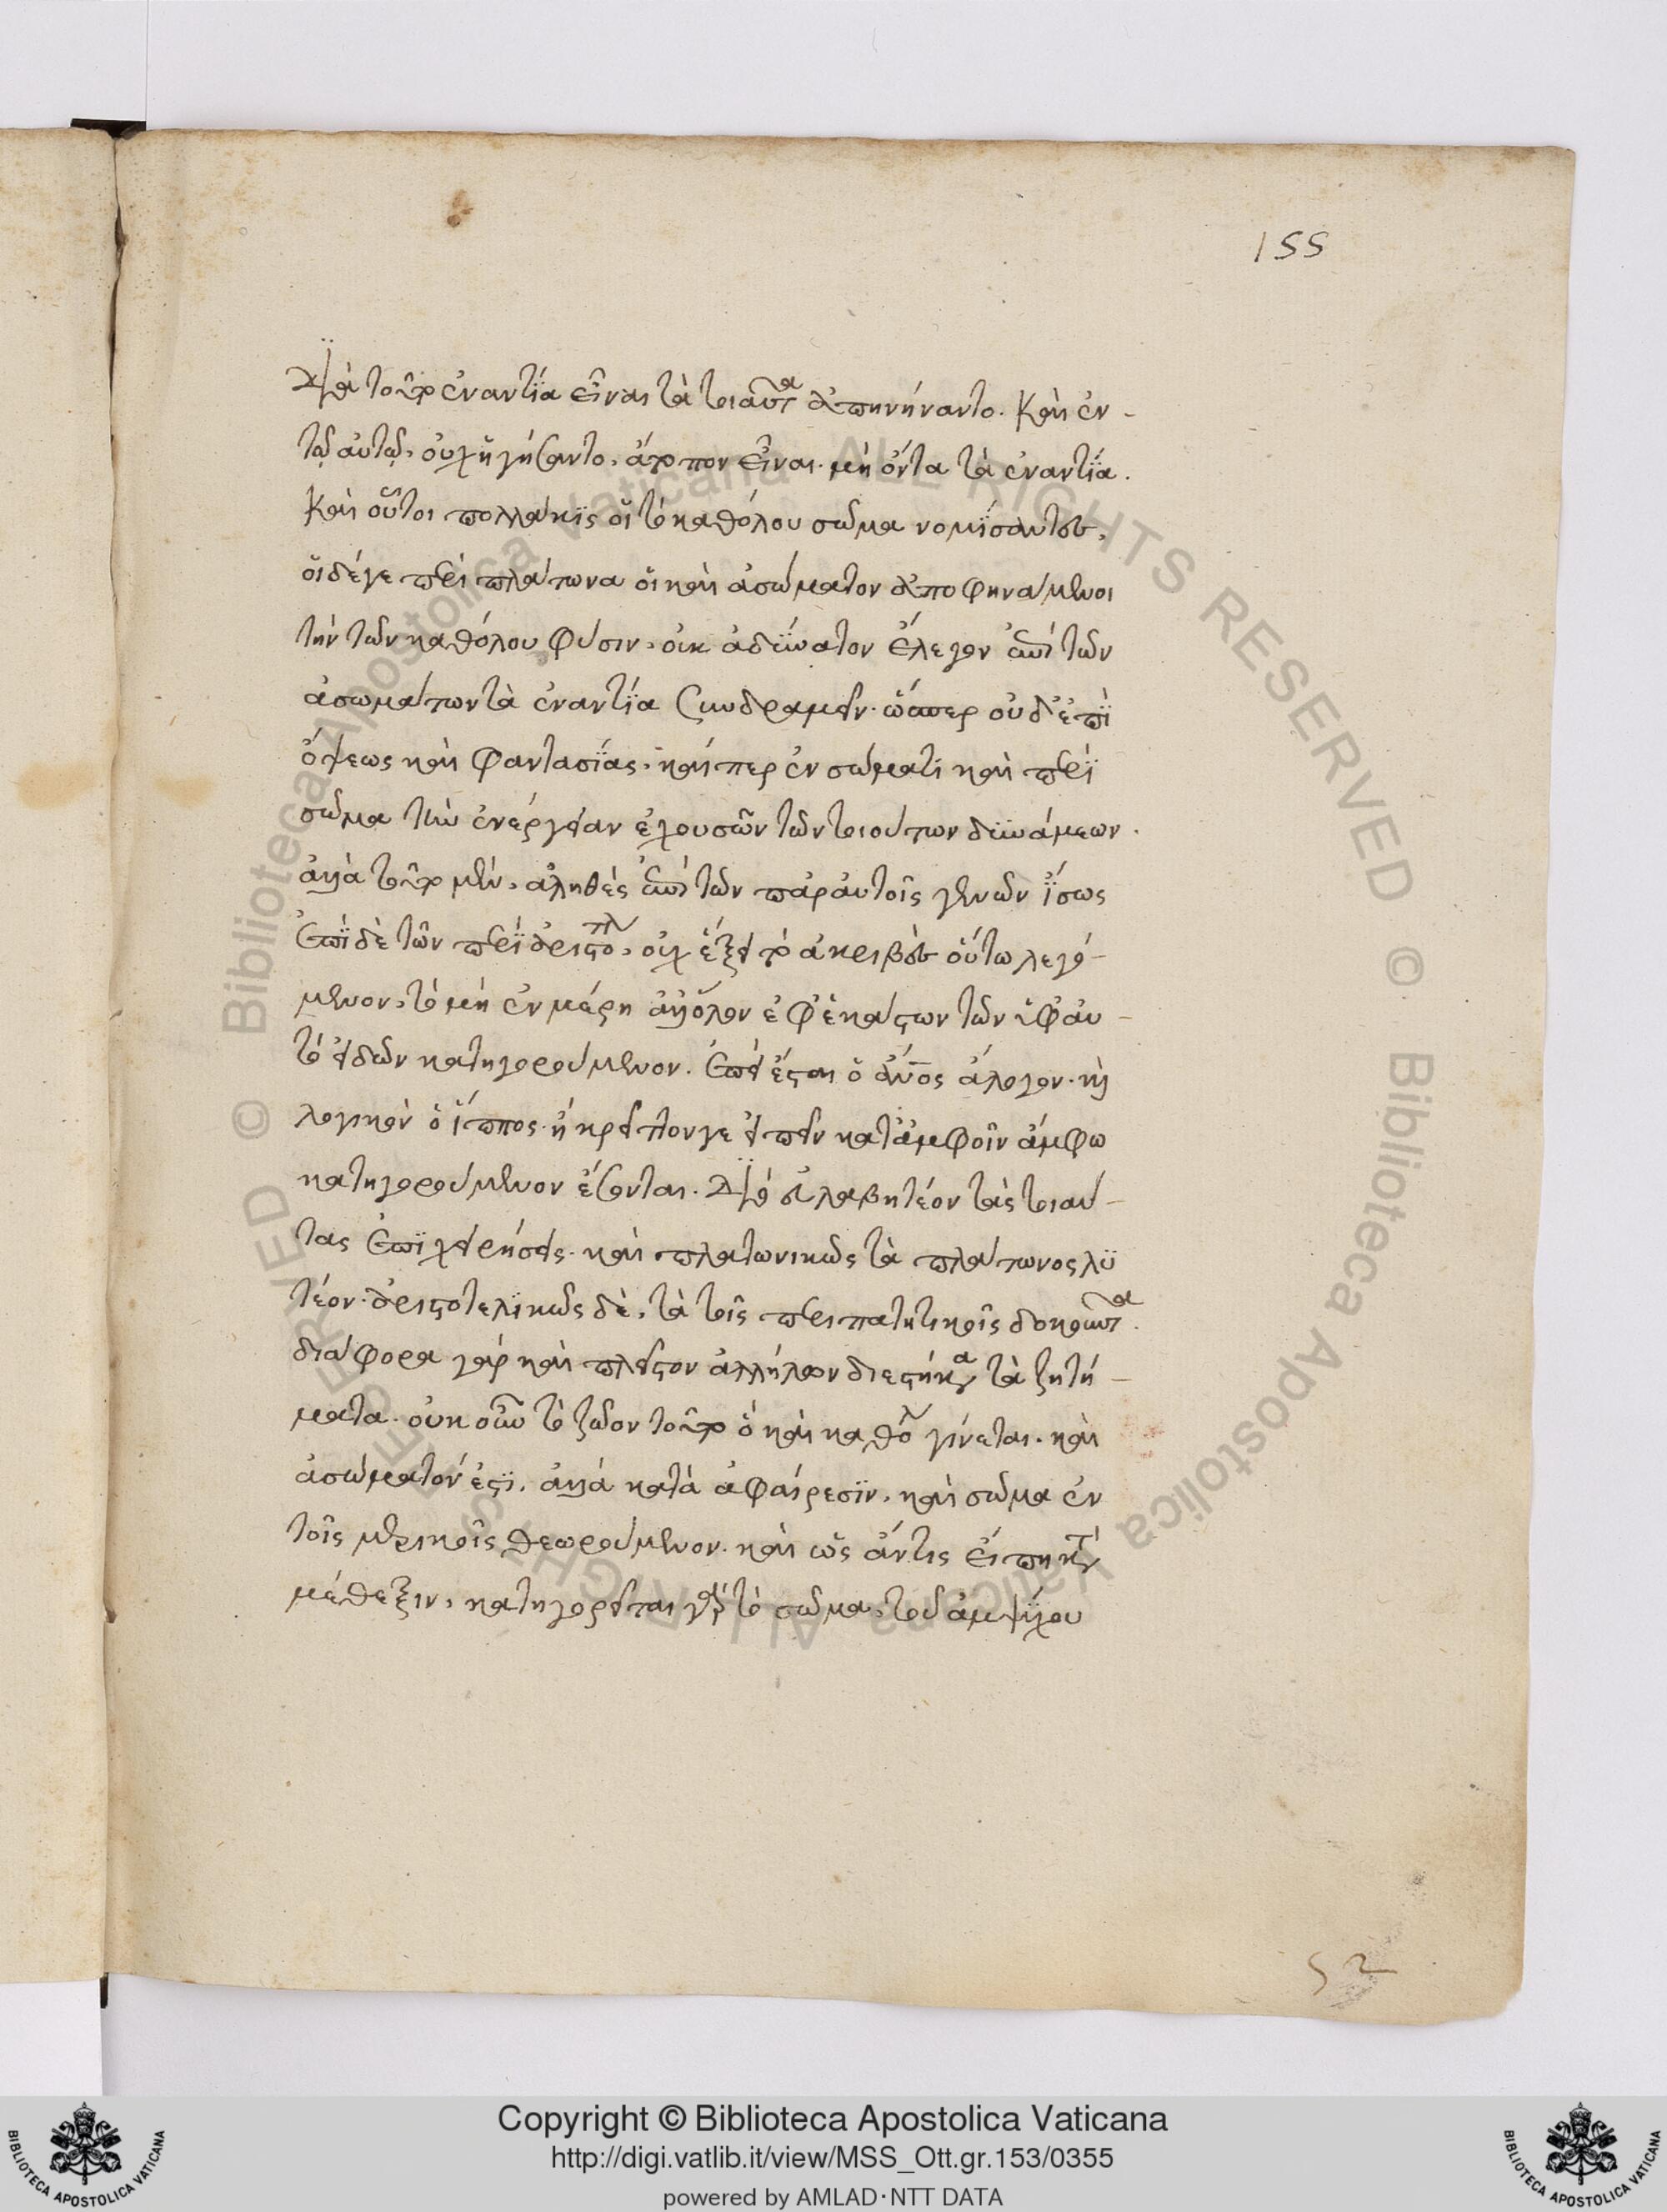 155
Διὰ τοῦτο ἐναντία εἶναι τὰ τοιαῦτα ἀπηνήναντο. Καὶ ἐν
τῷ αὐτῷ, οὐχ ἡγήσαντο, ἄτοπον εἶναι μὴ ὄντα τὰ ἐναντία.
Καὶ οὗτοι πολλάκις οἱ τὸ καθόλου σῶμα νομίσαντες,
οἱ δέ γε περὶ πλάτωνα οἳ καὶ ἀσώματον ἀποφηνάμενοι
τὴν τῶν καθόλου φύσιν, οὐκ ἀδύνατον ἔλεγον ἐπὶ τῶν
ἀσωμάτων τὰ ἐναντία συνδραμεῖν. ὥσπερ οὐδ' ἐπὶ
ὄψεως καὶ φαντασίας, καίπερ ἐν σώματι καὶ περὶ
σῶμα τὴν ἐνέργειαν ἐχουσῶν τῶν τοιούτων δυνάμεων.
ἀλλὰ τοῦτο μὲν, ἀληθὲς ἐπὶ τῶν παρ' αὐτοῖς γενῶν ἴσως
ἐπὶ δὲ τῶν περὶ ἀριστοτέλην, οὐχ ἕξει τὸ ἀκριβὲς οὕτω λεγό-
μενον, τὸ μὴ ἐν μέρη ἀλλ' ὅλον ἐφ' ἑκάστων τῶν ὑφ' αὑ-
τὸ εἰδῶν κατηγορούμενον. ἐπεὶ ἔσται ὁ ἄνος ἄλογον. καὶ
λογικὸν ὁ ἵππος. ἢ κρεῖττον γε εἰπεῖν κατ' ἀμφοῖν ἄμφω
κατηγορούμενον ἔσονται. Διὸ διαλαβητέον τὰς τοιαύ-
τας ἐπιχειρήσεις. καὶ πλατωνικῶς τὰ πλάτωνος λυ
τέον. ἀριστοτελικῶς δὲ, τὰ τοῖς περιπατητικοῖς δοκοῦντα.
διάφορα γάρ καὶ πλεῖστον ἀλλήλων διεστήκατα τὰ ζητή-
ματα. οὐκοῦν τὸ ζῶον τοῦτο ὃ καὶ καθόλου γίνεται. καὶ
ἀσώματόν ἐστι, ἀλλὰ κατὰ ἀφαίρεσιν. καὶ σῶμα ἐν
τοῖς μερικοῖς θεωρούμενον. καὶ ὡς ἄν τις εἴπῃ κατὰ
μέθεξιν, κατηγορεῖται γὰρ τὸ σῶμα, τοῦ ἀμψύχου
52
Copyright © Biblioteca Apostolica Vaticana
http://digi.vatlib.it/view/MSS_Ott.gr.153/0355
powered by AMLAD·NTT DATA